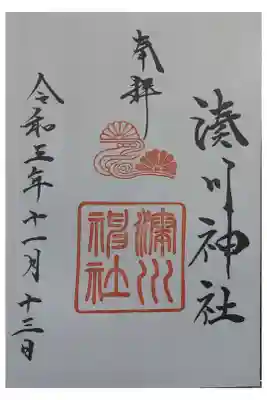 奉拝
湊川神社
湊川神社
令和三年十一月十三日